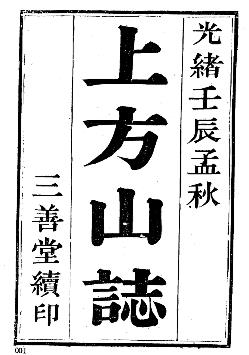 光緒壬辰孟秋
上方山誌
三善堂續印
001